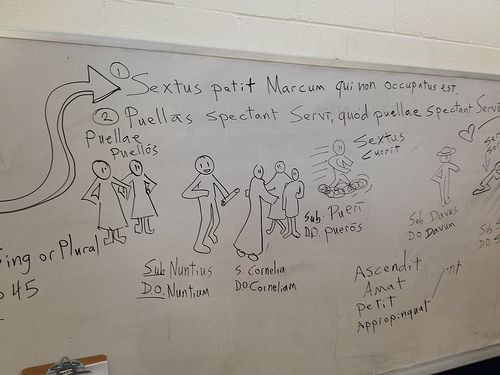 ① Sextus petit Marcum qui non occupatus est.
② Puellās spectant Servī, quod puellae spectant Servō
Puellae
Puellós
Sextus
currit
Sub. Puerī
D.O. puerōs
Sub Davus
D.O. Davum
ing or Plural
45
Sub Nuntius
D.O. Nuntium
S. Cornelia
D.O Corneliam
Ascendit
Amat
petit
Appropinquat
nt